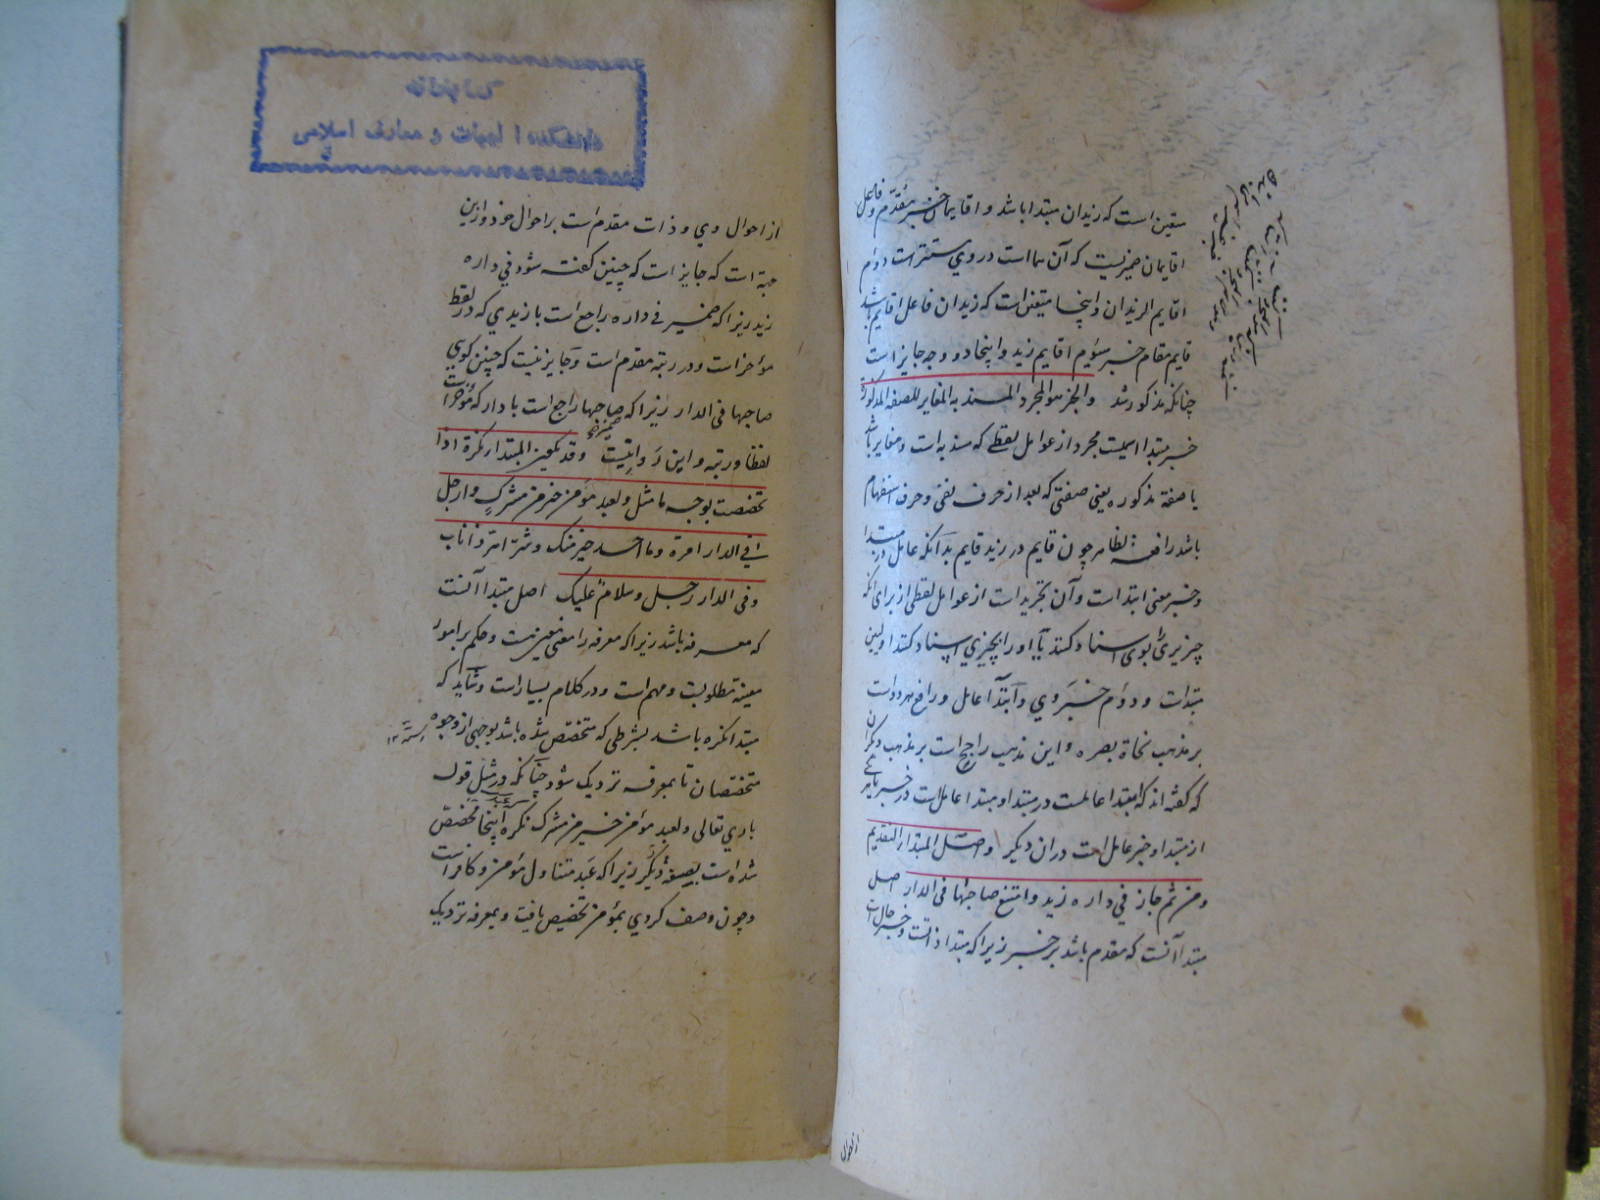 متعین است که زیدان مبتدا باشد و اقایمان خبر مقدم و فاعل
اقایمان ضمیریست که آن هما است در وی مستتر است دوم
اقایم الزیدان و اینجا متعین است که زیدان فاعل اقایم باشد
قایم مقام خبر سوم اقایم زید و اینجا دو وجه جایز است
چنانکه مذکور شد والخبر هو المجرد المسند به المغایر للصفة المذکورة
خبر مبتدا اسمیست مجرد از عوامل لفظی که مسند به است و مغایر باشد
با صفة مذکوره یعنی صفتی که بعد از حرف نفی و حرف استفهام
باشد رافعه لظاهر چون قایم در زید قایم بدانکه عامل در مبتدا
و خبر معنی ابتدا است و آن تجرید است از عوامل لفظی از برای آنکه
چیزی را بوی اسناد کنند یا او را بچیزی اسناد کنند اولین
مبتداست و دوم خبر وی و ابتدا عامل و رافع هر دو است
بر مذهب نحاة بصره و این مذهب راجح است بر مذهب دیگران
که گفته اند که ابتدا عاملست در مبتدا و مبتدا عامل است در خبر یا هر یکی
از مبتدا و خبر عامل است در آن دیگر واصل المبتدا التقدیم
ومن ثم جاز فی داره زید وامتنع صاحبها فی الدار اصل
مبتدا آنست که مقدم باشد بر خبر زیرا که مبتدا ذاتست و خبر حال است
از احوال
خانه
دانشکده الهیات و معارف اسلامی
از احوال وی و ذات مقدم است بر احوال خود و ازین
جهة است که جایز است که چنین گفته شود فی داره
زید زیرا که ضمیر فی داره راجع است با زیدی که در لفظ
مؤخر است و در رتبه مقدم است و جایز نیست که چنین گویی
صاحبها فی الدار زیرا که صاحبها راجع است با دار که مؤخر است
ضمیر
لفظا و رتبه و این روا نیست وقد یکون المبتدا نکرة اذا
تخصصت بوجه ما مثل ولعبد مؤمن خیر من مشرک و ارجل
فی الدار ام امرة وما احد خیر منک وشر اهر ذا ناب
وفی الدار رجل وسلام علیک اصل مبتدا آنست
که معرفه باشد زیرا که معرفه را معنی معین است و حکم بر امور
معینه مطلوبست و مهم است و در کلام بسیار است و شاید که
مبتدا نکره باشد بشرطی که متخصص شده باشد بوجهی از وجوه
متخصصان تا بمعرفه نزدیک شود چنانکه در مثل قول
باری تعالی ولعبد مؤمن خیر من مشرک نکره اینجا مخصص
شده است بصفه دیگر زیرا که عبد متناول مؤمن و کافر است
و چون وصف کردی بمؤمن تخصیص یافت و بمعرفه نزدیک